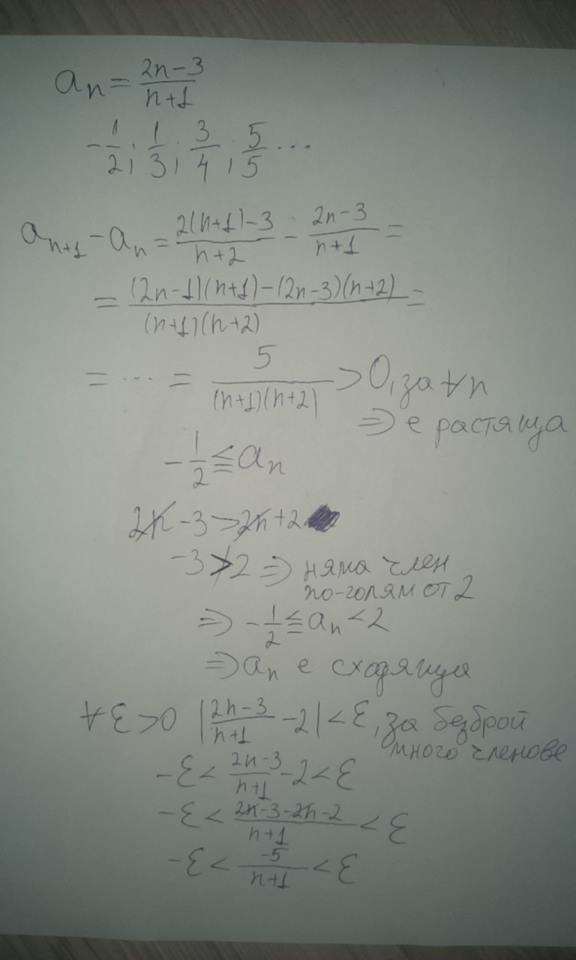 aₙ = (2n-3)/(n+1)
-1/2; 1/3; 3/4; 5/5 ...
aₙ₊₁ - aₙ = (2(n+1)-3)/(n+2) - (2n-3)/(n+1) =
= ((2n-1)(n+1)-(2n-3)(n+2))/((n+1)(n+2)) =
= ... = 5/((n+1)(n+2)) > 0, за ∀n
⇒ е растяща
-1/2 ≦ aₙ
2n - 3 > 2n + 2
-3 ≯ 2 ⇒ няма член
по-голям от 2
⇒ -1/2 ≦ aₙ < 2
⇒ aₙ е сходяща
∀ ε > 0 |(2n-3)/(n+1) - 2| < ε, за безброй
много членове
-ε < (2n-3)/(n+1) - 2 < ε
-ε < (2n-3-2n-2)/(n+1) < ε
-ε < -5/(n+1) < ε